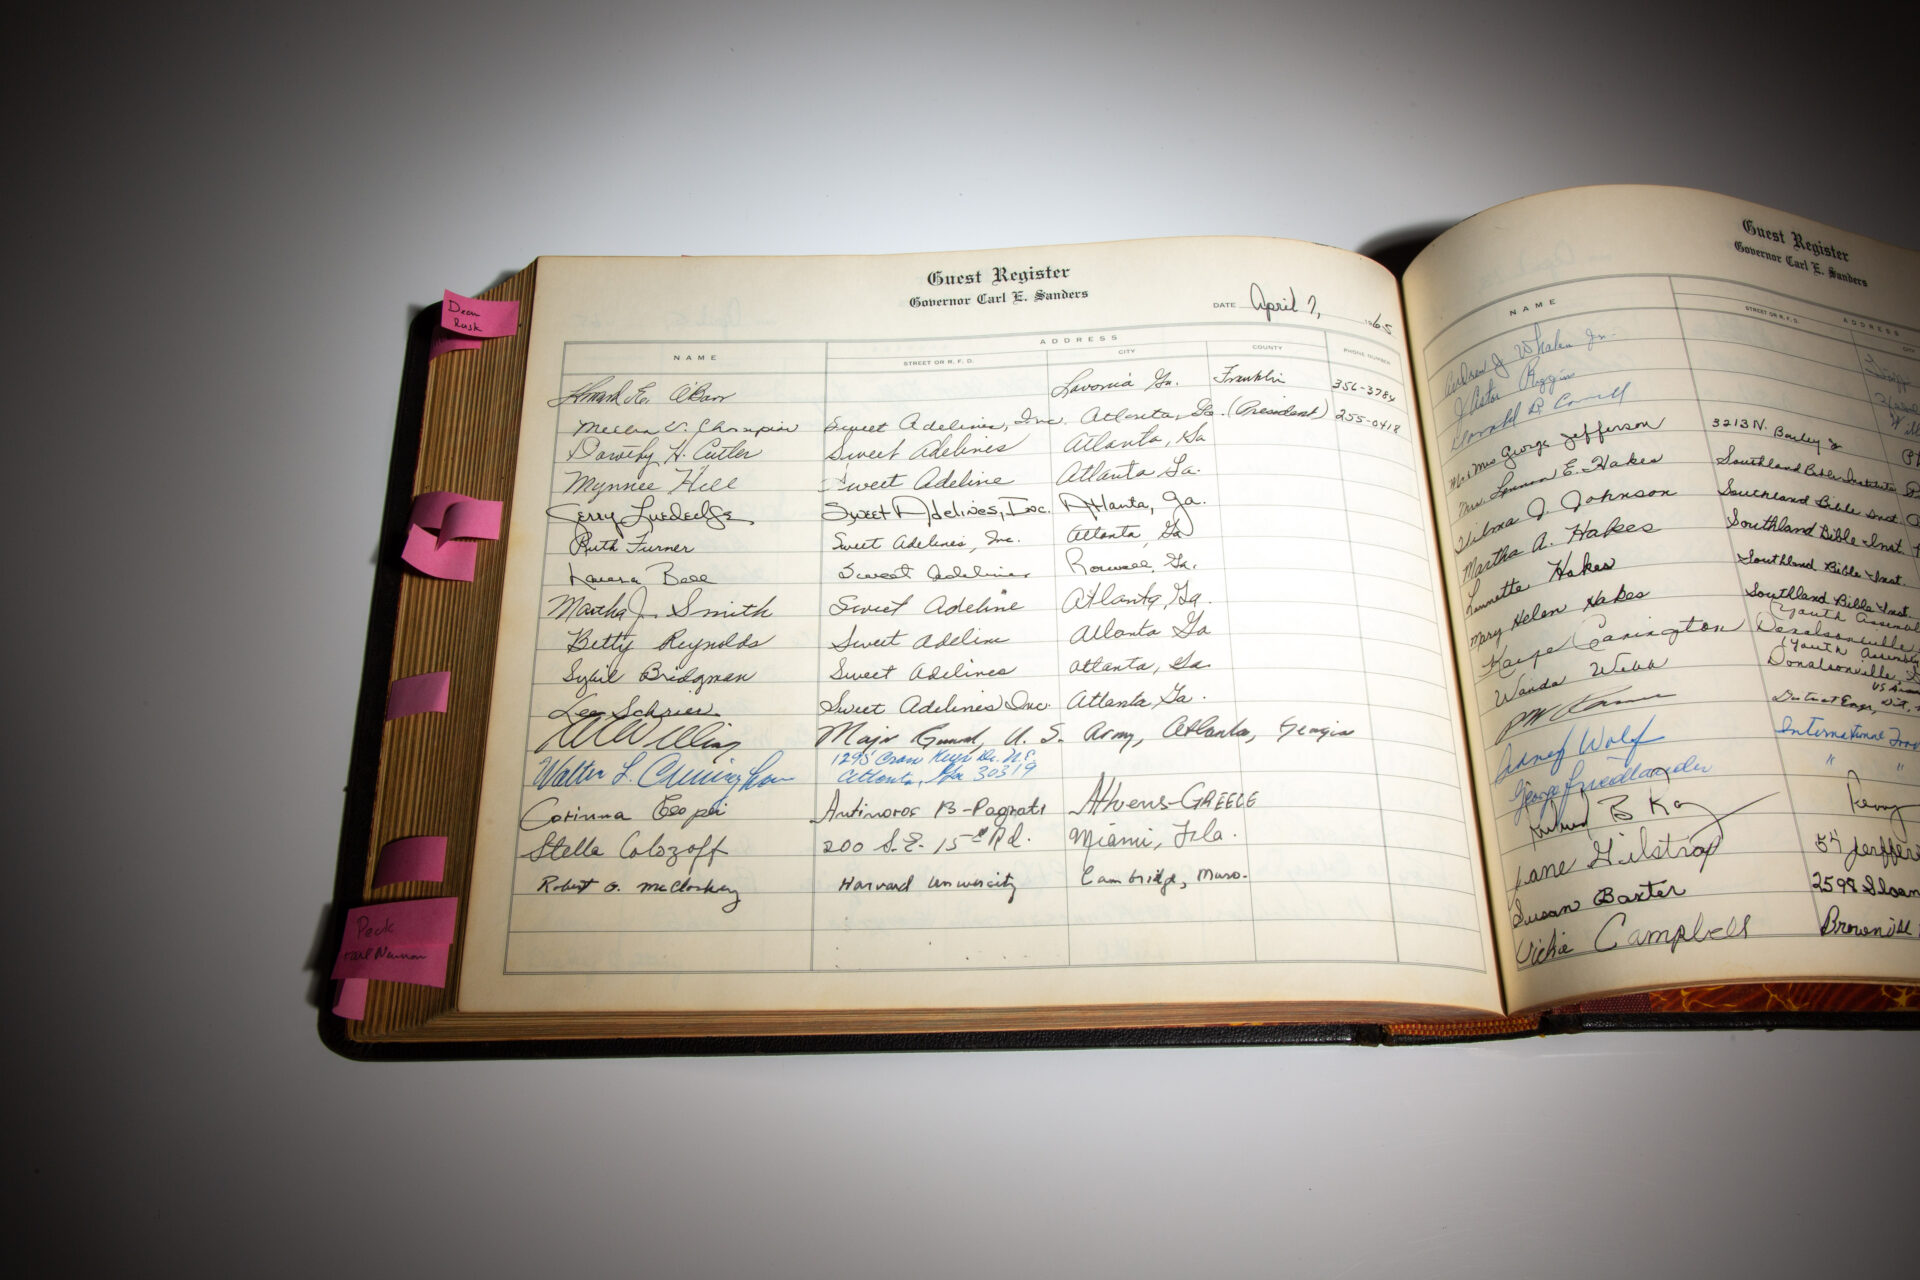 Dean
Rusk
Peck
Guest Register
Governor Carl E. Sanders
DATE April 7, 1965
ADDRESS
NAME STREET OR R. F. D. CITY COUNTY PHONE NUMBER
E. O'Barr Lavonia Ga. Franklin 356-3784
Sweet Adelines, Inc. Atlanta, Ga. (President) 255-0418
Dorothy H. Cutler Sweet Adelines Atlanta, Ga
Mynnee Hill Sweet Adeline Atlanta Ga.
Jerry Sweet Adelines, Inc. Atlanta, Ga.
Ruth Turner Sweet Adelines, Inc. Atlanta, Ga
Sweet Adelines Roswell, Ga.
Martha J. Smith Sweet Adeline Atlanta, Ga.
Betty Reynolds Sweet Adeline Atlanta Ga
Sybil Bridgman Sweet Adelines Atlanta, Ga.
Lee Schrier Sweet Adelines Inc. Atlanta, Ga.
Major General, U. S. Army, Atlanta, Georgia
Walter L. 1295 Dr. N.E.
Atlanta, Ga 30319
Corinna Antinoros 13-Pagrati Athens-GREECE
Stella Colozoff 200 S.E. 15th Rd. Miami, Fla.
Robert G. McCloskey Harvard University Cambridge, Mass.
Guest Register
Governor Carl E. Sanders
ADDRESS
NAME STREET OR R. F. D. CITY
J. Whalen Jr.
J Astor Riggins
Donald D.
Mr & Mrs George Jefferson 3213 N.
Mrs. E. Hakes Southland Bible Institute
Wilma J. Johnson Southland Bible Inst.
Martha A. Hakes Southland Bible Inst.
Lennette Hakes Southland Bible Inst.
Mary Helen Hakes Southland Bible Inst.
(Youth Assembly
Donalsonville
(Youth Assembly
Wanda Webb Donalsonville,
District Engr,
Wolf International
George Friedlander " "
B Kay
Jane Gilstrap 54
Susan Baxter 2598 Sloan
Vickie Campbell